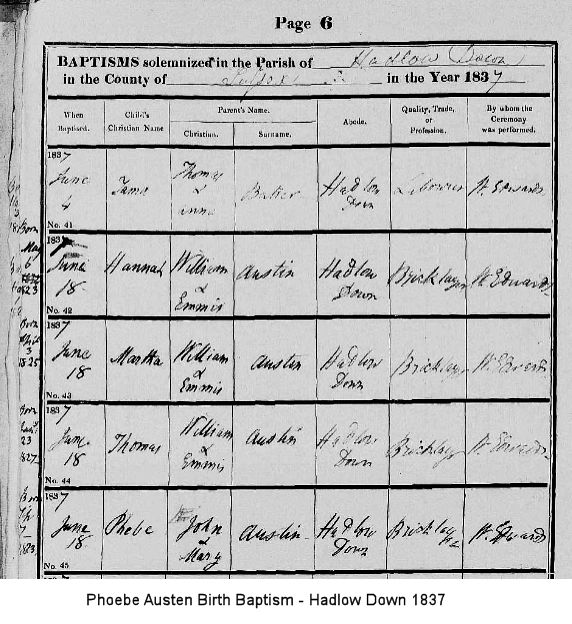 Page 6
BAPTISMS solemnized in the Parish of Hadlow Down
in the County of Sussex in the Year 1837
When Baptised.
Child's Christian Name
Parent's Name.
Christian.
Surname.
Abode.
Quality, Trade, or Profession.
By whom the Ceremony was performed.
1837
June 4
No. 41
James
Thomas & Anne
Baker
Hadlow Down
Labourer
W. Edwards
Born May 6 1823
1837
June 18
No. 42
Hannah
William & Emmis
Austin
Hadlow Down
Bricklayer
W. Edwards
Born
3
1825
1837
June 18
No. 43
Martha
William & Emmis
Austin
Hadlow Down
Bricklayer
W. Edwards
Born
23
1827
1837
June 18
No. 44
Thomas
William & Emmis
Austin
Hadlow Down
Bricklayer
W. Edwards
Born
1837
June 18
No. 45
Phebe
John & Mary
Austin
Hadlow Down
Bricklayer
W. Edwards
Phoebe Austen Birth Baptism - Hadlow Down 1837